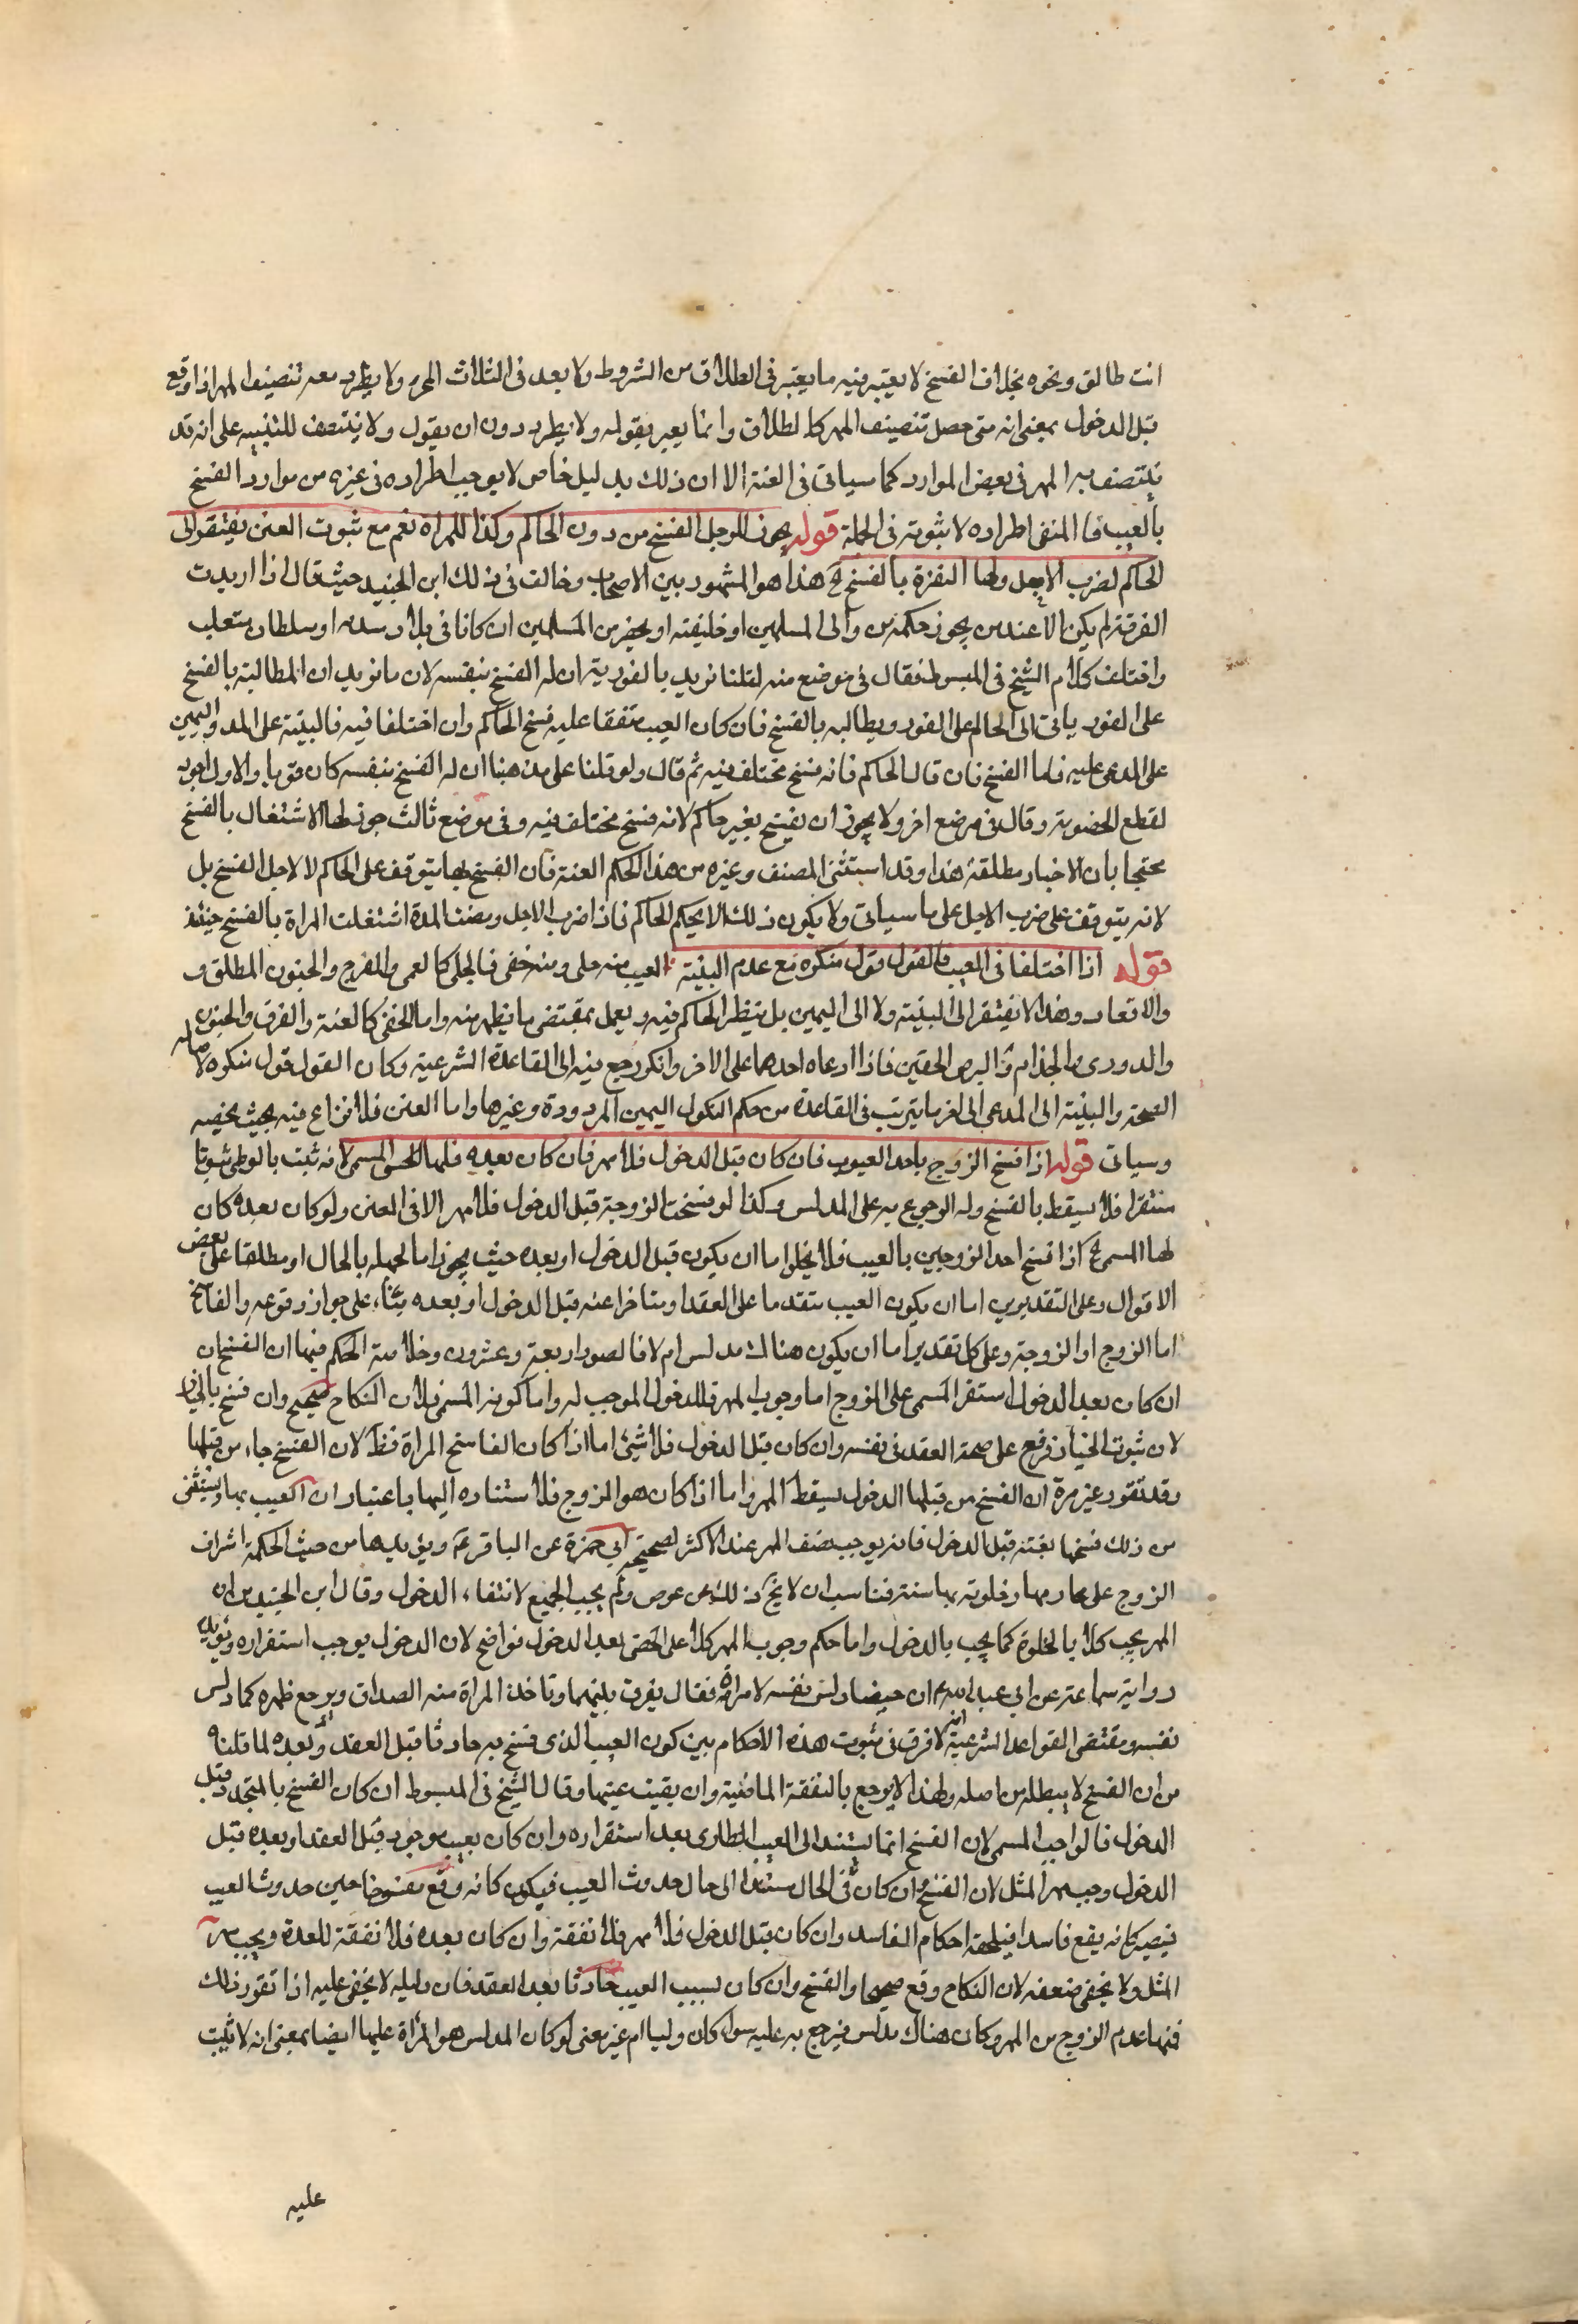 انت طالق ونحوه بخلاف الفسخ لا يعتبر فيه ما يعتبر في الطلاق من الشروط ولا يعد في الثلاث المحرم ولا يطرد معه تنصيف المهر اذا وقع
قبل الدخول بمعنى انه متى حصل تنصيف المهر كالطلاق وانما يعبر بقوله ولا يطرد دون ان يقول ولا ينتصف للتنبيه على انه قد
ينتصف به المهر في بعض الموارد كما سياتى في العنة الا ان ذلك بدليل خاص لا يوجب اطراده في غيره من موارد الفسخ
بالعيب فالمنفى اطراده لا ثبوته في الجملة قوله يجوز للرجل الفسخ من دون الحاكم وكذا للمراة نعم مع ثبوت العنن يفتقر الى
الحاكم لضرب الاجل ولها التفرد بالفسخ هذا هو المشهور بين الاصحاب وخالف في ذلك ابن الجنيد حيث قال اذا اريدت
الفرقة لم يكن الا عند من يجوز حكمه من والى المسلمين او خليفته او بحضر من المسلمين ان كانا في بلاد هدنه او سلطان متغلب
واختلف كلام الشيخ في المبسوط فقال في موضع منه لقلنا نريد بالفورية ان له الفسخ بنفسه لان ما نريد ان المطالبة بالفسخ
على الفور ياتى الى الحاكم على الفور ويطالبه بالفسخ فان كان العيب متفقا عليه فسخ الحاكم وان اختلفا فيه فالبينة على المدعى واليمين
على المدعى عليه فاما الفسخ فان قال الحاكم فانه فسخ مختلف فيه ثم قال ولو قلنا على مذهبنا ان له الفسخ بنفسه كان قويا والاول احوط
لقطع الخصومة وقال في موضع اخر ولا يجوز ان يفسخ بغير حاكم لانه فسخ مختلف فيه وفى موضع ثالث جوز لها الاشتغال بالفسخ
محتجا بان الاخبار مطلقة هذا وقد استثنى المصنف وغيره من هذا الحكم العنة فان الفسخ بها يتوقف على الحاكم لا لاجل الفسخ بل
لانه يتوقف على ضرب الاجل على ما سياتى ولا يكون ذلك الا بحكم الحاكم فاذا ضرب الاجل ومضت المدة اشتغلت المراة بالفسخ حينئذ
قوله اذا اختلفا في العيب فالقول قول منكره مع عدم البينة العيب منه جلى ومنه خفى فالجلى كالعمى والعرج والجنون المطلق و
والاقعاد وهذا لا يفتقر الى البينة ولا الى اليمين بل ينظر الحاكم فيه ويعمل بمقتضى ما يظهر منه واما الخفى كالعنة والقرن والجنون
والدورى والجذام والبرص الخفين فاذا ادعاه احدهما على الاخر وانكر رجع فيه الى القاعدة الشرعية وكان القول قول منكره لاصاله
الصحة والبينة الى المدعى الى اخر ما يترتب في القاعدة من حكم النكول اليمين المردودة وغيرها واما العنن فلا نزاع فيه بحيث يخصه
وسياتى قوله اذا فسخ الزوج باحد العيوب فان كان قبل الدخول فلا مهر فان كان بعده فلها المسمى لانه ثبت بالوطى ثبوتا
مستقرا فلا يسقط بالفسخ وله الرجوع به على المدلس وكذا لو فسخت الزوجة قبل الدخول فلا مهر الا في العنن ولو كان بعده كان
لها المسمى اذا فسخ احد الزوجين بالعيب فلا يخلوا اما ان يكون قبل الدخول او بعده حيث يجوز اما لجهله بالحال او مطلقا على بعض
الاقوال وعلى التقديرين اما ان يكون العيب متقدما على العقد او متاخرا عنه قبل الدخول او بعده بناء على جواز وقوعه والفاسخ
اما الزوج او الزوجة وعلى كل تقدير اما ان يكون هناك مدلس ام لا فالصور اربعة وعشرون وخلاصة الحكم فيها ان الفسخ ان
ان كان بعد الدخول استقر المسمى على الزوج اما وجوب المهر فللدخول الموجب له واما كونه المسمى فلان النكاح صحيح وان فسخ بالخيار
لان ثبوت الخيار فرع على صحة العقد في نفسه وان كان قبل الدخول فلا شئ اما اذا كان الفاسخ المراة فظ لان الفسخ جاء من قبلها
وقد تقرر غير مرة ان الفسخ من قبلها الدخول يسقط المهر واما اذا كان هو الزوج فلاستناده اليها باعتبار ان العيب بها ويستثنى
من ذلك فسخها بعنته قبل الدخول فانه يوجب نصف المهر عند الاكثر لصحيحه ابي حمزة عن الباقر ع ويؤيدها من حيث الحكمة اشراف
الزوج على محارمها وخلوته بها سنة فناسب ان لا يخ ذلك من عوض ولم يجب الجميع لانتفاء الدخول وقال ابن الجنيد ان
المهر يجب كلا بالخلوة كما يجب بالدخول واما حكم وجوب المهر كلا على الخصى بعد الدخول فواضح لان الدخول يوجب استقراره ويؤيده
رواية سماعة عن ابي عبد الله ع ان خصيا دلس نفسه لامراة فقال يفرق بينهما وتاخذ المراة منه الصداق ويوجع ظهره كما دلس
نفسه ومقتضى القواعد الشرعية انه لا فرق في ثبوت هذه الاحكام بين كون العيب الذى فسخ به حادثا قبل العقد وبعده لما قلناه
من ان الفسخ لا يبطله من اصله ولهذا لا يرجع بالنفقة الماضية وان بقيت عينها وقال الشيخ في المبسوط ان كان الفسخ بالمتجدد قبل
الدخول فالواجب المسمى لان الفسخ انما يستند الى العيب الطارى بعد استقراره وان كان بعيب موجود قبل العقد او بعده قبل
الدخول وجب مهر المثل لان الفسخ وان كان في الحال مستندا الى حال حدوث العيب فيكون كانه وقع مفسوخا حين حدوث العيب
فيصير كانه يقع فاسدا فيلحقه احكام الفاسد وان كان قبل الدخول فلا مهر فلا نفقة وان كان بعده فلا نفقة للعدة ويجب مهر
المثل ولا يخفى ضعفه لان النكاح وقع صحيحا والفسخ وان كان بسبب العيب حادثا بعد العقد فان دليله لا يخفى عليه اذا تقرر ذلك
فمتى اعدم الزوج من المهر وكان هناك مدلس فيرجع به عليه سواء كان وليا ام غيره معنى لو كان المدلس هو المراة عليها ايضا بمعنى انه لا يثبت
عليه